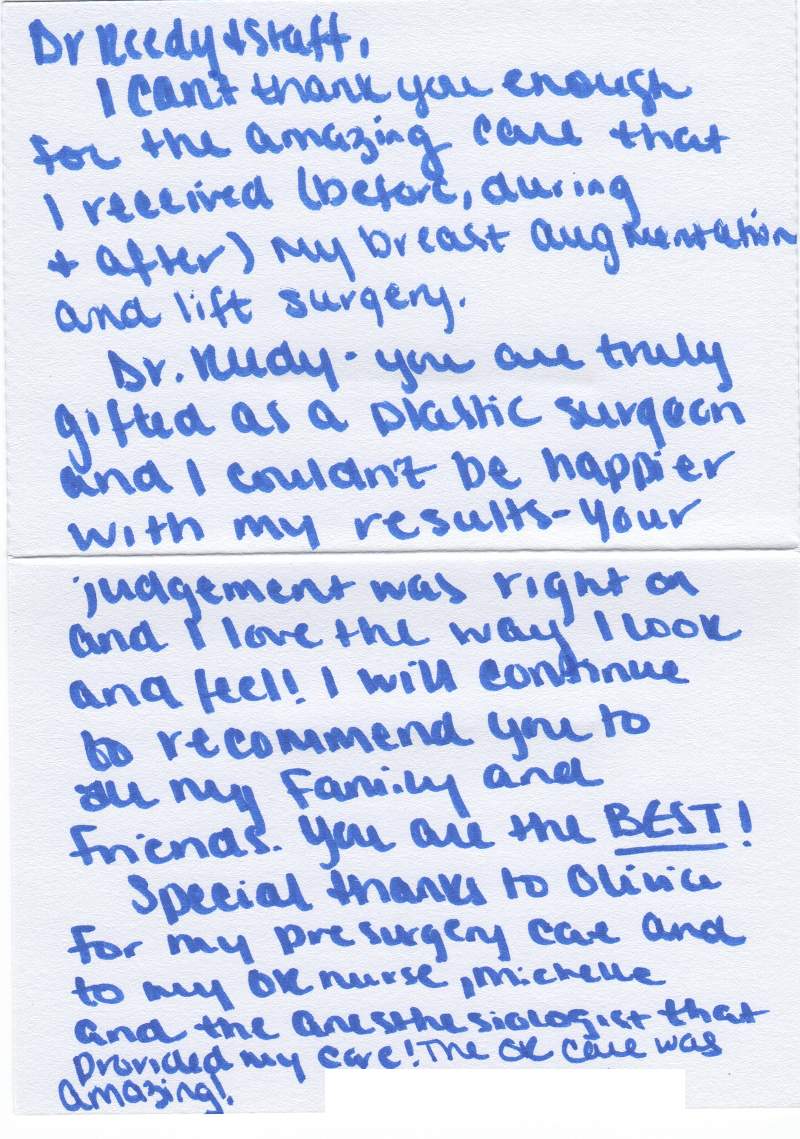 Dr Reedy + Staff,
I can't thank you enough
for the amazing care that
I received (before, during
+ after) my breast augmentation
and lift surgery.
Dr. Reedy - you are truly
gifted as a plastic surgeon
and I couldn't be happier
with my results - your
judgement was right on
and I love the way I look
and feel! I will continue
to recommend you to
all my family and
friends. You are the BEST!
Special thanks to Olivia
for my presurgery care and
to my OR nurse, Michelle
and the anesthesiologist that
provided my care! The OR care was
amazing!